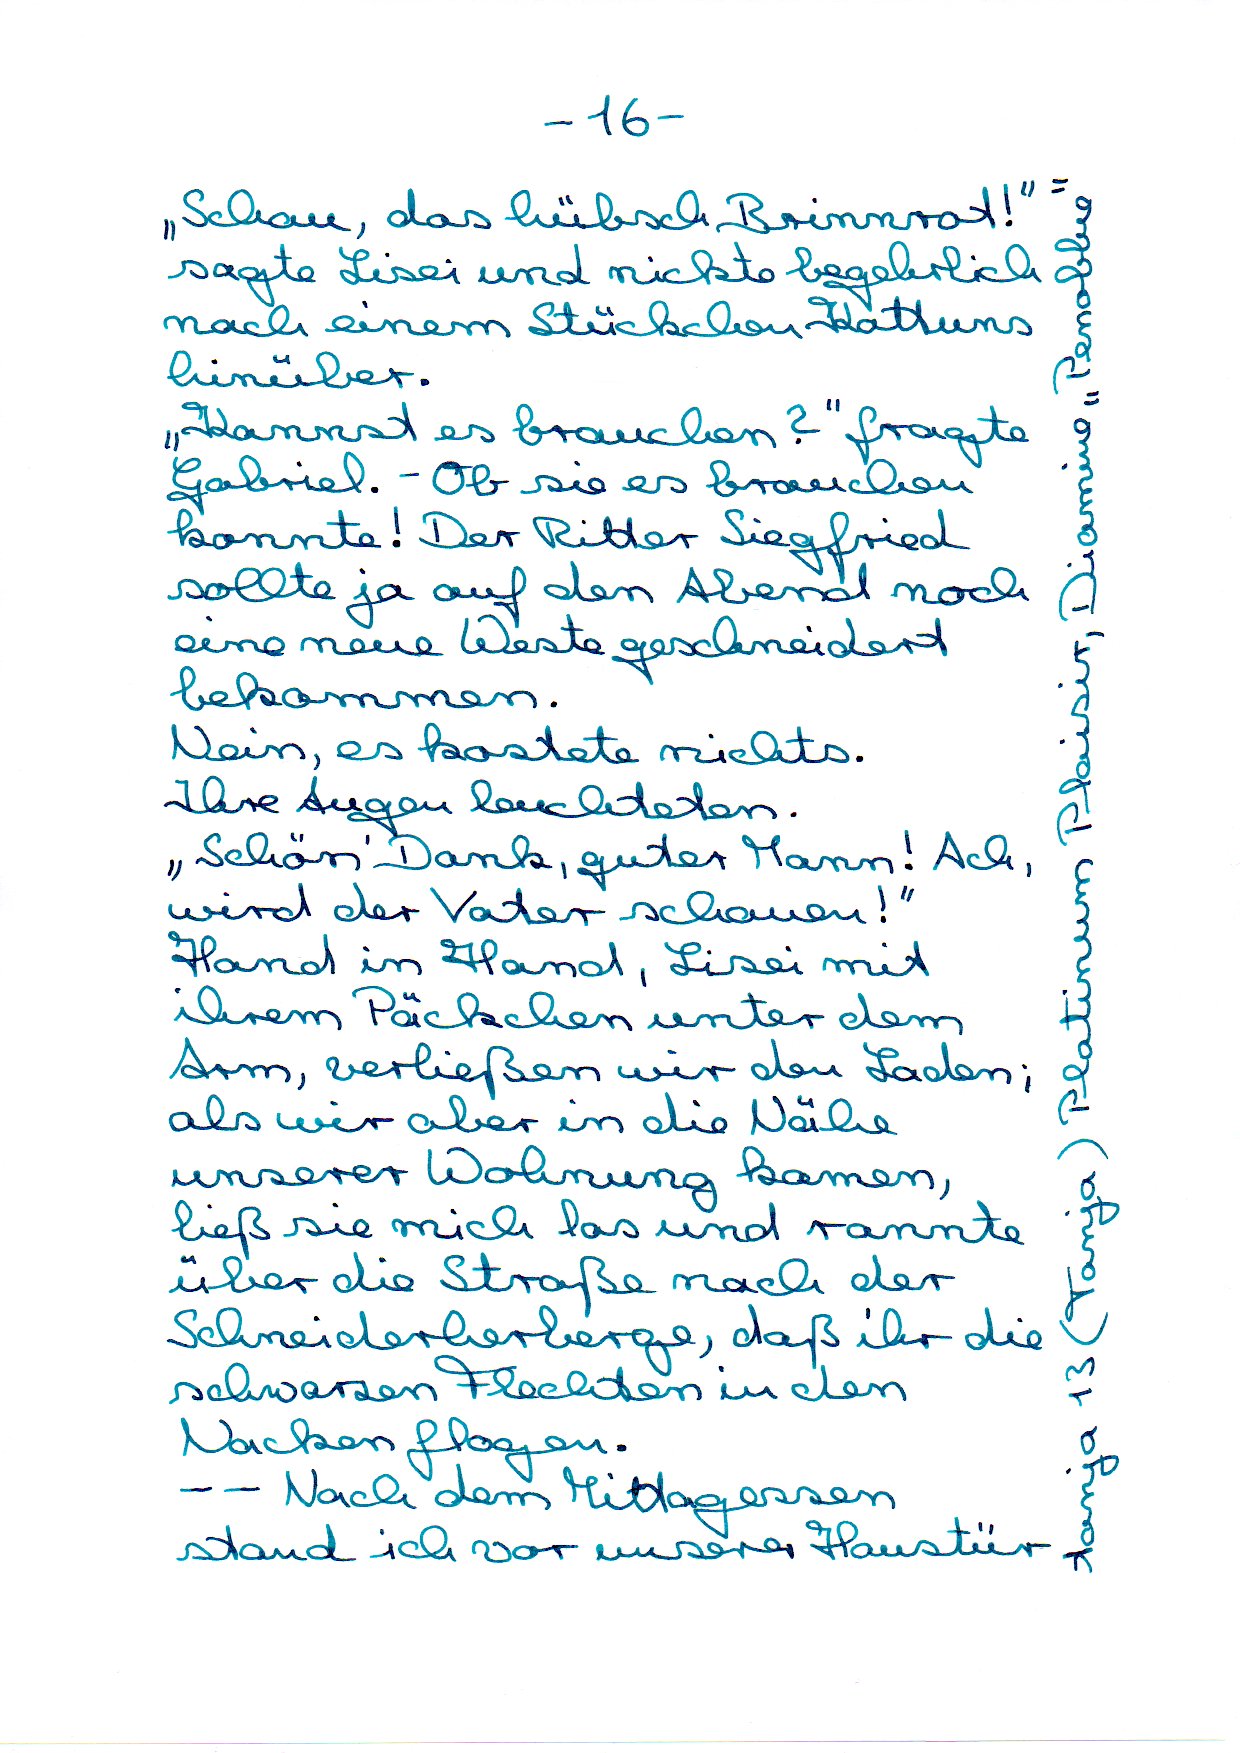 - 16 -
„Schau, das hübsch Brinnrot!"
sagte Lisei und nickte begehrlich
nach einem Stückchen Kattuns
hinüber.
„Kannst es brauchen?" fragte
Gabriel. - Ob sie es brauchen
konnte! Der Ritter Siegfried
sollte ja auf den Abend noch
eine neue Weste geschneidert
bekommen.
Nein, es kostete nichts.
Ihre Augen leuchteten.
„Schön' Dank, guter Mann! Ach,
wird der Vater schauen!"
Hand in Hand, Lisei mit
ihrem Päckchen unter dem
Arm, verließen wir den Laden;
als wir aber in die Nähe
unserer Wohnung kamen,
ließ sie mich los und rannte
über die Straße nach der
Schneiderherberge, daß ihr die
schwarzen Flechten in den
Nacken flogen.
-- Nach dem Mittagessen
stand ich vor unserer Haustür
Tanja 13 (Tanja) Platinum Plaisir, Diamine „Penoblue"